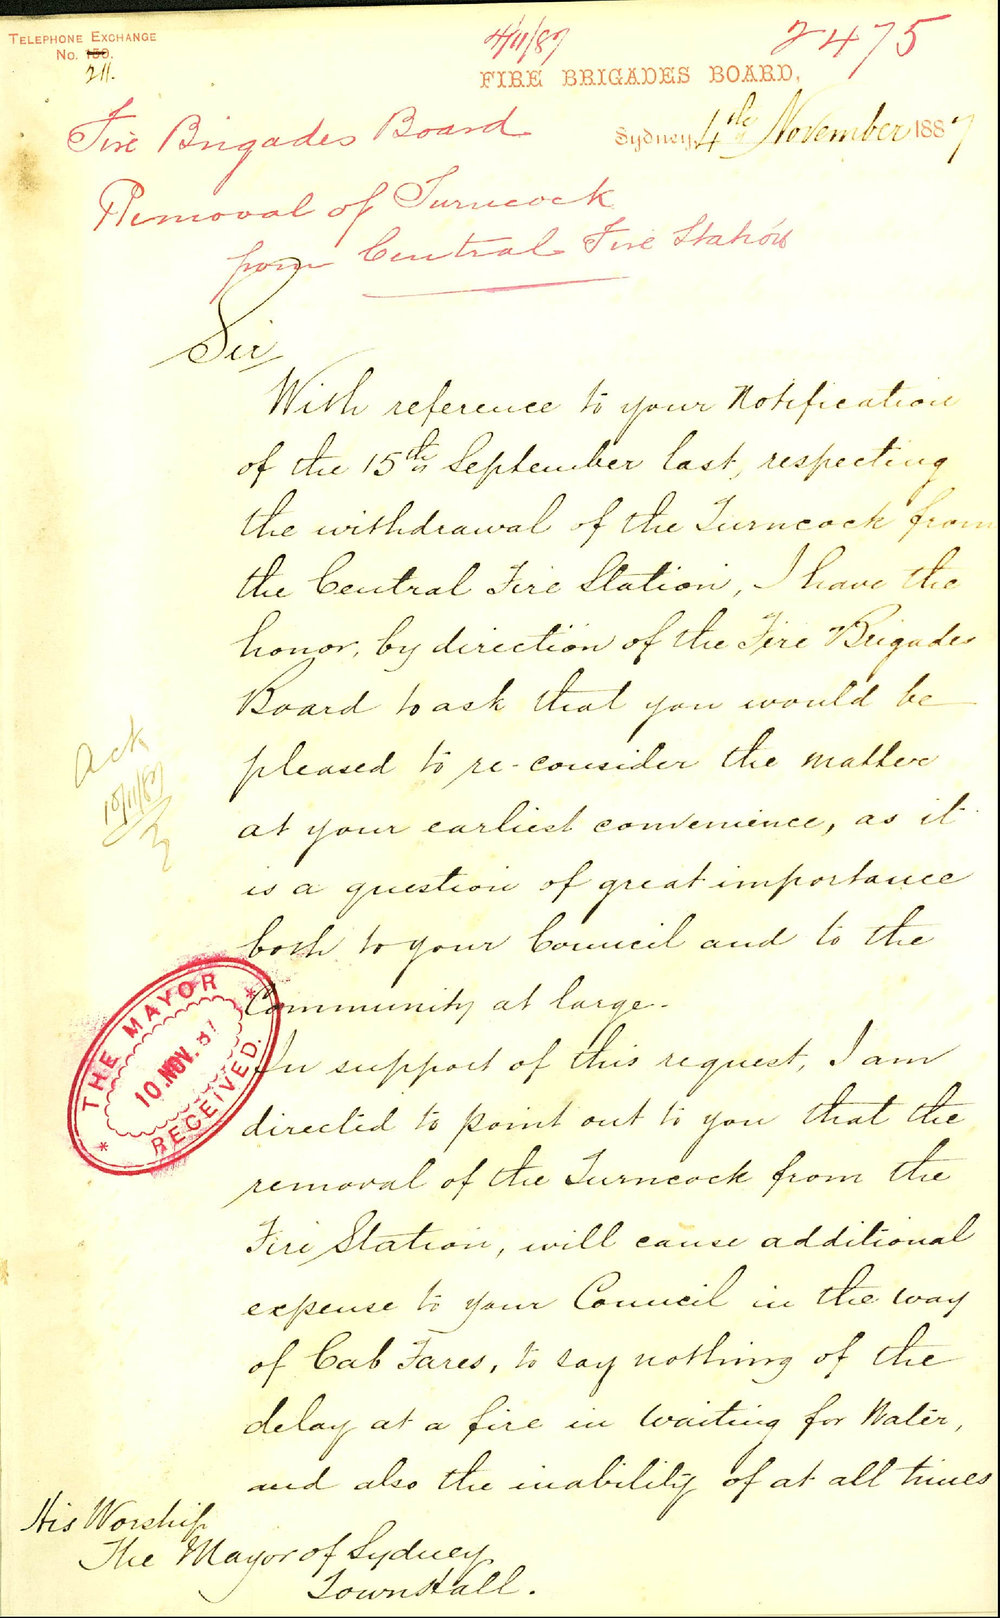 TELEPHONE EXCHANGE
No. 150.
211.
4/11/87
2475
FIRE BRIGADES BOARD,
Sydney, 4th November 1887
Fire Brigades Board
Removal of Turncock
from Central Fire Station
Sir
With reference to your Notification
of the 15th September last, respecting
the withdrawal of the Turncock from
the Central Fire Station, I have the
honor, by direction of the Fire Brigades
Board to ask that you would be
pleased to re-consider the matter
at your earliest convenience, as it
is a question of great importance
both to your Council and to the
Community at large.
In support of this request, I am
directed to point out to you that the
removal of the Turncock from the
Fire Station, will cause additional
expense to your Council in the way
of Cab Fares, to say nothing of the
delay at a fire in waiting for Water,
and also the inability of at all times
Ack
10/11/87
THE MAYOR
10 NOV. 87
RECEIVED.
His Worship
The Mayor of Sydney
Town Hall.